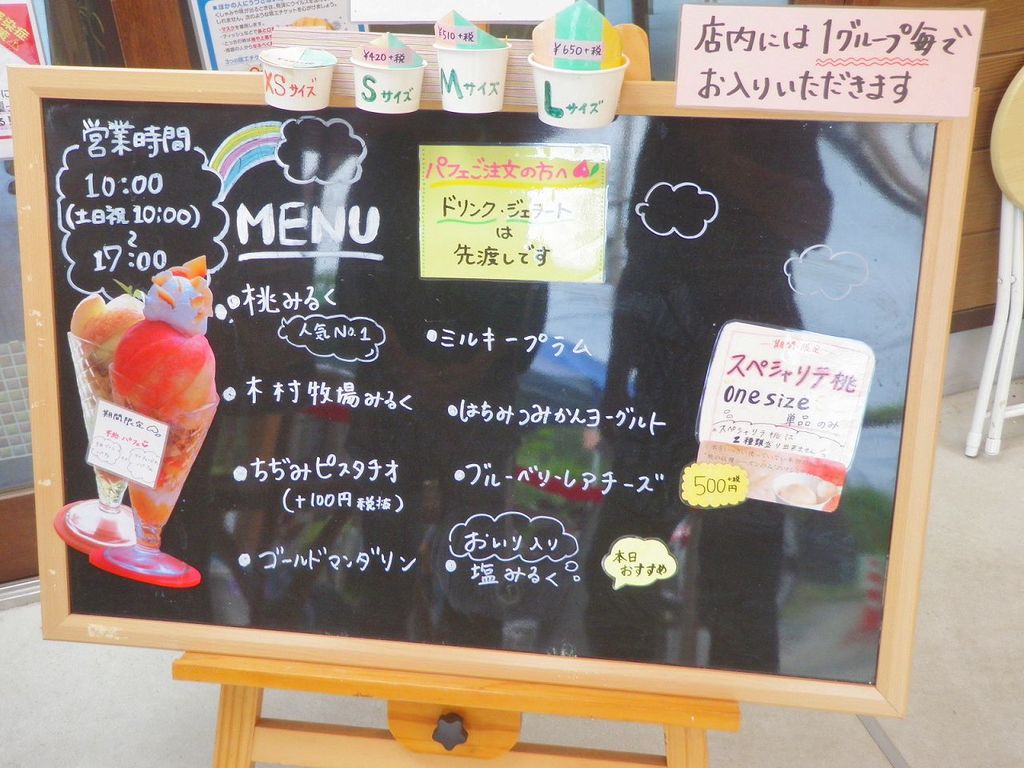 XSサイズ
¥420+税
Sサイズ
¥510+税
Mサイズ
¥650+税
Lサイズ
店内には1グループ毎で
お入りいただきます
営業時間
10:00
(土日祝10:00)
2
17:00
MENU
パフェご注文の方へ
ドリンク・ジェラート
は
先渡しです
・桃みるく
人気No.1
・木村牧場みるく
・ちぢみピスタチオ
(+100円税抜)
・ゴールドマンダリン
・ミルキープラム
・はちみつみかんヨーグルト
・ブルーベリーレアチーズ
おいり入り
・塩みるく
本日
おすすめ
期間限定
スペシャリテ桃
one size
単品のみ
500円
+税
期間限定